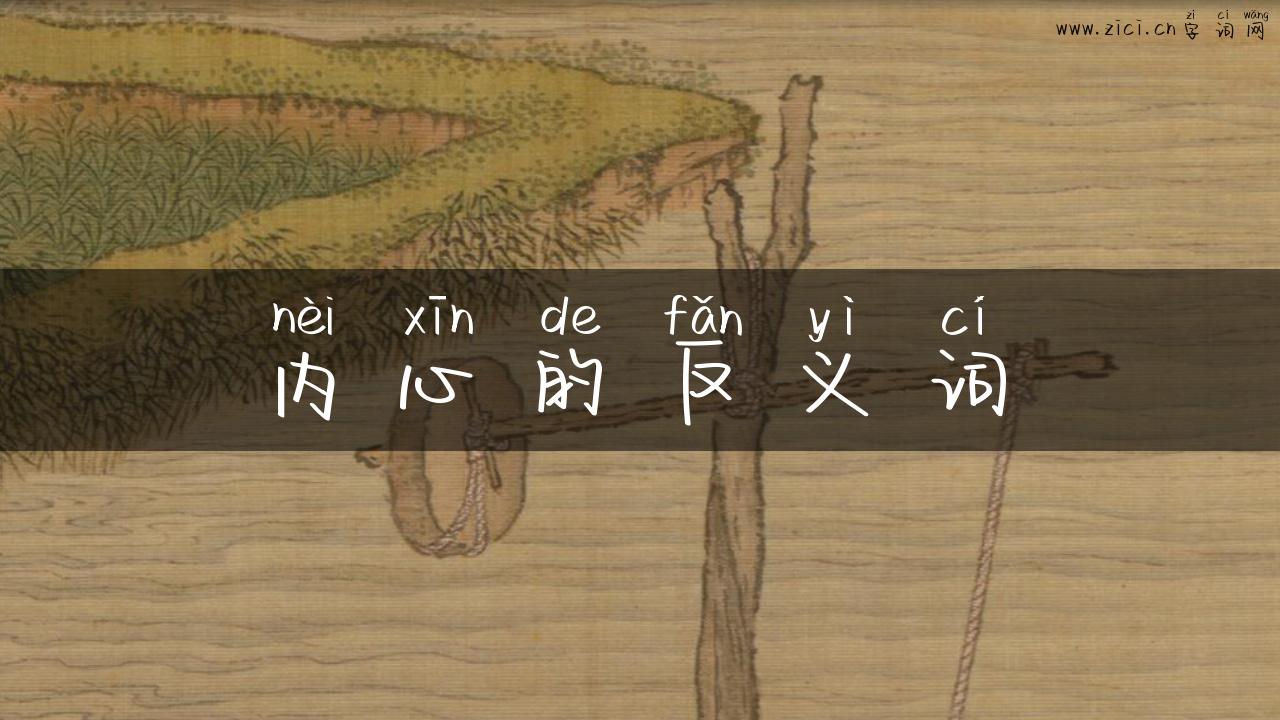 zì cí wǎng
www.zici.cn字词网
nèi xīn de fǎn yì cí
内心的反义词